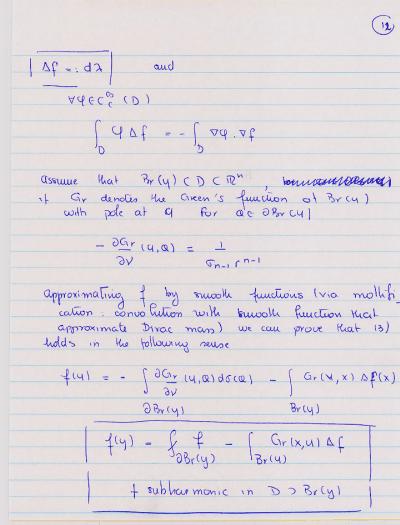 12
Δf =: dλ and
∀φ∈C_c^∞(D)
∫_D φ Δf = - ∫_D ∇φ . ∇f
assume that Br(y) ⊂ D ⊂ ℝ^n ,
if Gr denotes the Green's function of Br(y)
with pole at y for Q ∈ ∂Br(y)
- ∂Gr/∂ν (y,Q) = 1/(σ_{n-1} r^{n-1})
approximating f by smooth functions (via mollifi
cation : convolution with smooth function that
approximate Dirac mass) we can prove that (3)
holds in the following sense
f(y) = - ∫_{∂Br(y)} ∂Gr/∂ν (y,Q) dσ(Q) - ∫_{Br(y)} Gr(x,x) Δf(x)
f(y) = ⨍_{∂Br(y)} f - ∫_{Br(y)} Gr(x,y) Δf
f subharmonic in D ⊃ Br(y)